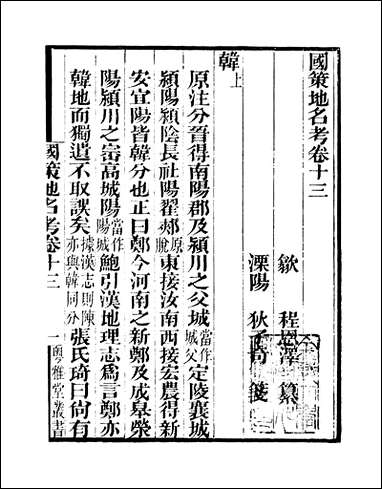 國策地名考卷十三
歙 程恩澤 纂
溧陽 狄子奇 箋
韓上
原注分晉得南陽郡及潁川之父城當作城父定陵襄城
潁陽潁陰長社陽翟郟原脫東接汝南西接宏農得新
安宜陽皆韓分也正曰鄭今河南之新鄭及成皋榮
陽潁川之崈高城陽當作陽城鮑引漢地理志爲言鄭亦
韓地而獨遺不取誤矣據漢志則陳亦與韓同分張氏琦曰尙有
國策地名考卷十三 一 粵雅堂叢書